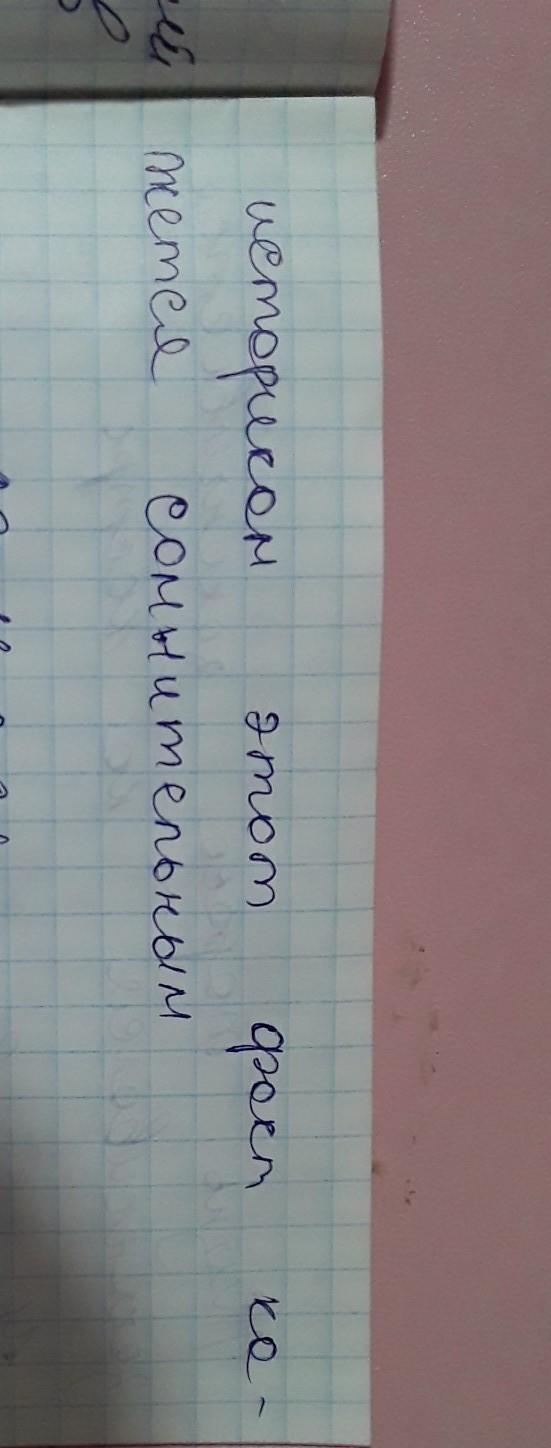 историком этот факт ка-
жется сомнительным